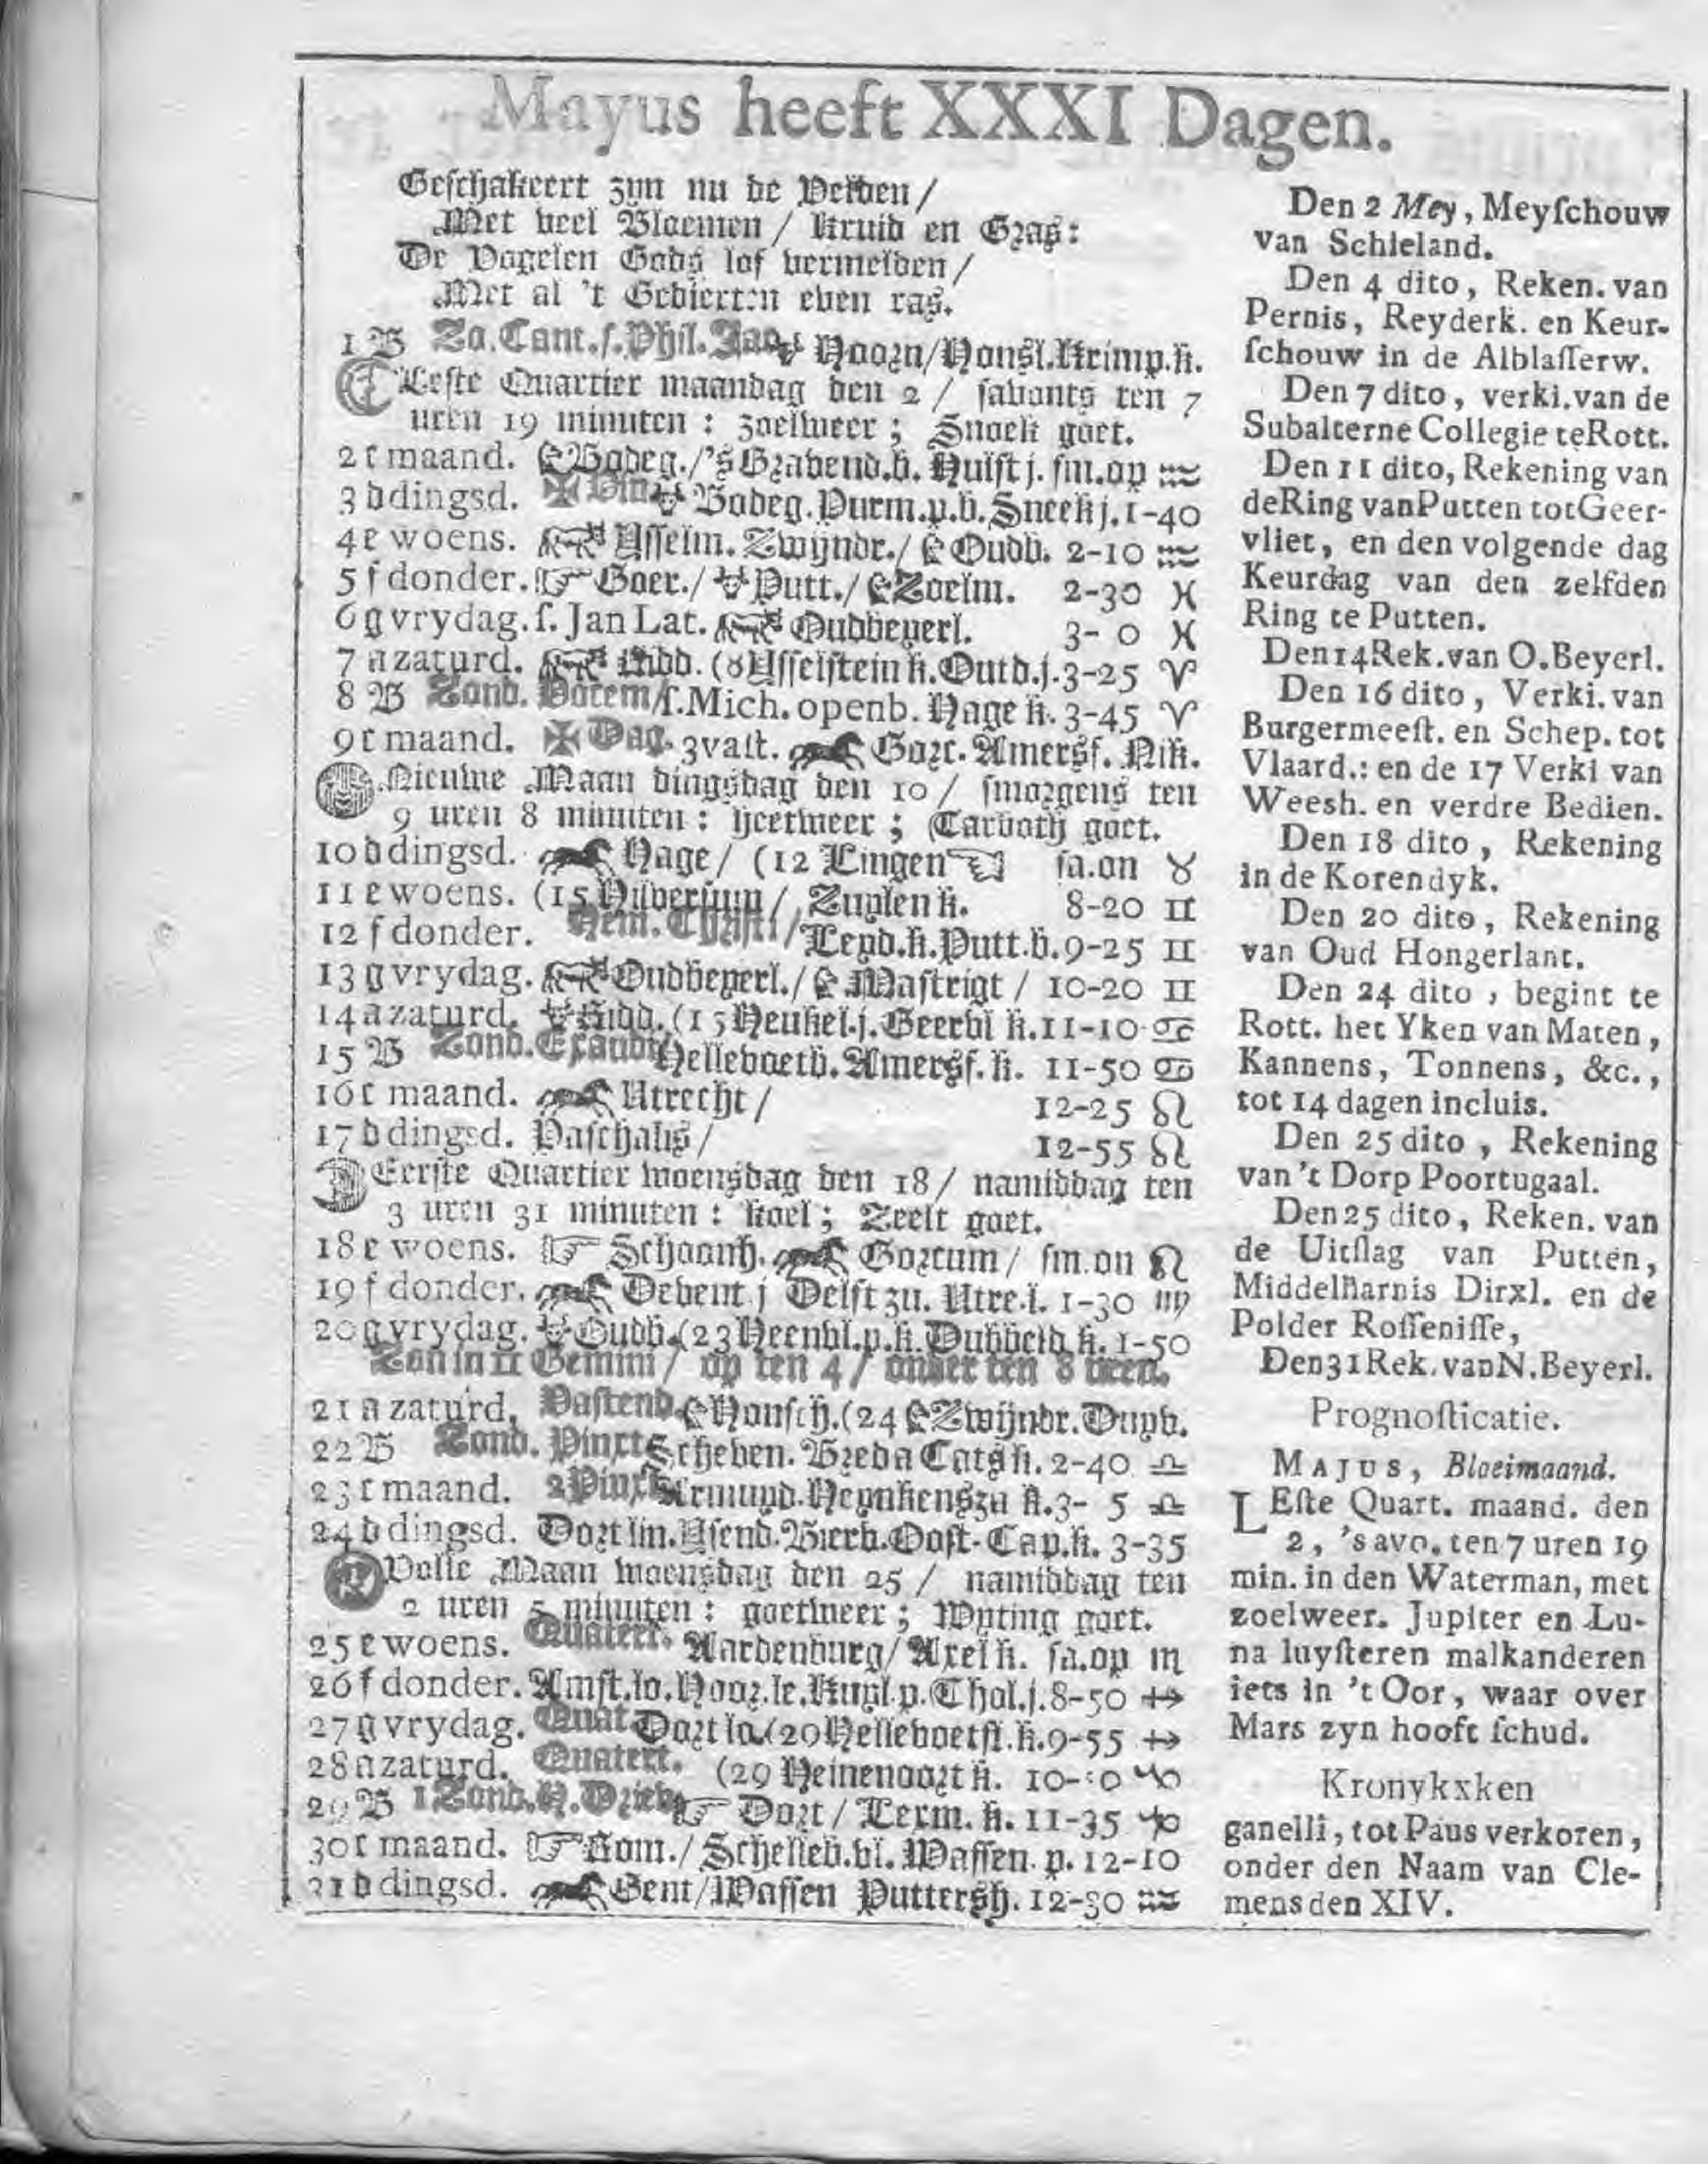 Mayus heeft XXXI Dagen.
Geschakeert zyn nu de Velden /
Met veel Bloemen / Kruid en Gras:
De Vogelen Gods lof vermelden /
Met al 't Gedierten even ras.
1 B Zo. Cant. ſ. Phil. Jac. Hoorn/Honsl. Krimp. k.
Leste Quartier maandag den 2 / savonts ten 7
uren 19 minuten : zoelweer ; Snoek goet.
2 c maand. Bodeg./'s Gravend. v. Hulst j. sm. op ♒
3 d dingsd. ✠ Vin Bodeg. Purm. p. v. Sneek j. 1-40
4 e woens. ☞ Ysselm. Zwyndr./ Oudb. 2-10 ♒
5 f donder. ☞ Goer./ Putt./ Zoelm. 2-30 ♓
6 g vrydag. ſ. Jan Lat. Oudbeyerl. 3- 0 ♓
7 a zaturd. Ridd. (8 Ysselstein k. Outd. j. 3-25 ♈
8 B Zond. Vocem/ſ. Mich. openb. Hage k. 3-45 ♈
9 c maand. ✠ Dag. Zvalt. Gort. Amersf. Nik.
Nieuwe Maan dingsdag den 10 / smorgens ten
9 uren 8 minuten : heetweer ; Carvoth goet.
10 d dingsd. Hage / (12 Lingen ☜ sa. on ♉
11 e woens. (15 Hilversum / Zuylen k. 8-20 ♊
12 f donder. Hem. Christi/Leyd. k. Putt. v. 9-25 ♊
13 g vrydag. Oudbeyerl./ Mastrigt / 10-20 ♊
14 a zaturd. Ridd. (15 Heukel. j. Geervl k. 11-10 ♋
15 B Zond. Exaudi/Hellevoetv. Amersf. k. 11-50 ♋
16 c maand. Utrecht / 12-25 ♌
17 d dingsd. Paschalis / 12-55 ♌
Eerste Quartier woensdag den 18 / namiddag ten
3 uren 31 minuten : koel ; Zeelt goet.
18 e woens. ☞ Schoonh. Gorcum / sm. on ♌
19 f donder. Devent. j Delft zu. Utre. l. 1-30 ♍
20 g vrydag. Oudb. (23 Heenvl. p. k. Dubbeld. k. 1-50
Zon in ♊ Gemini / op ten 4 / onder ten 8 uren.
21 a zaturd. Vastend. Honsch. (24 Zwyndr. Duyv.
22 B Zond. Pinxt. Scheven. Breda Cats k. 2-40 ♎
23 c maand. 2 Pinxt. Armuyd. Heynkenszn k. 3- 5 ♎
24 d dingsd. Dort lin. Ysend. Bierv. Oost-Cap. k. 3-35
Volle Maan woensdag den 25 / namiddag ten
2 uren 5 minuten : goetweer ; Wyting goet.
25 e woens. Quatert. Aardenburg/ Axel k. sa. op ♏
26 f donder. Amst. lo. Hoor. le. Kuyl. p. Thol. j. 8-50 ♐
27 g vrydag. Quat. Dort la. (29 Hellevoetsl. k. 9-55 ♐
28 a zaturd. Quatert. (29 Heinenoort k. 10- 0 ♑
29 B 1 Zond. H. Drievo. ☞ Dort / Lexm. k. 11-35 ♑
30 c maand. ☞ Rom./ Schelleb. vl. Wassen. p. 12-10
31 d dingsd. Gent/Wassen Puttersh. 12-30 ♒
Den 2 Mey, Meyſchouw
van Schieland.
Den 4 dito, Reken. van
Pernis, Reyderk. en Keur-
ſchouw in de Alblaſſerw.
Den 7 dito, verki. van de
Subalterne Collegie te Rott.
Den 11 dito, Rekening van
de Ring van Putten tot Geer-
vliet, en den volgende dag
Keurdag van den zelfden
Ring te Putten.
Den 14 Rek. van O. Beyerl.
Den 16 dito, Verki. van
Burgermeeſt. en Schep. tot
Vlaard.: en de 17 Verki van
Weesh. en verdre Bedien.
Den 18 dito, Rekening
in de Korendyk.
Den 20 dito, Rekening
van Oud Hongerlant.
Den 24 dito, begint te
Rott. het Yken van Maten,
Kannens, Tonnens, &c.,
tot 14 dagen incluis.
Den 25 dito, Rekening
van 't Dorp Poortugaal.
Den 25 dito, Reken. van
de Uitſlag van Putten,
Middelharnis Dirxl. en de
Polder Roſſeniſſe,
Den 31 Rek. van N. Beyerl.
Prognoſticatie.
MAJUS, Bloeimaand.
LEſte Quart. maand. den
2, 's avo. ten 7 uren 19
min. in den Waterman, met
zoelweer. Jupiter en Lu-
na luyſteren malkanderen
iets in 't Oor, waar over
Mars zyn hooft ſchud.
Kronykxken
ganelli, tot Paus verkoren,
onder den Naam van Cle-
mens den XIV.